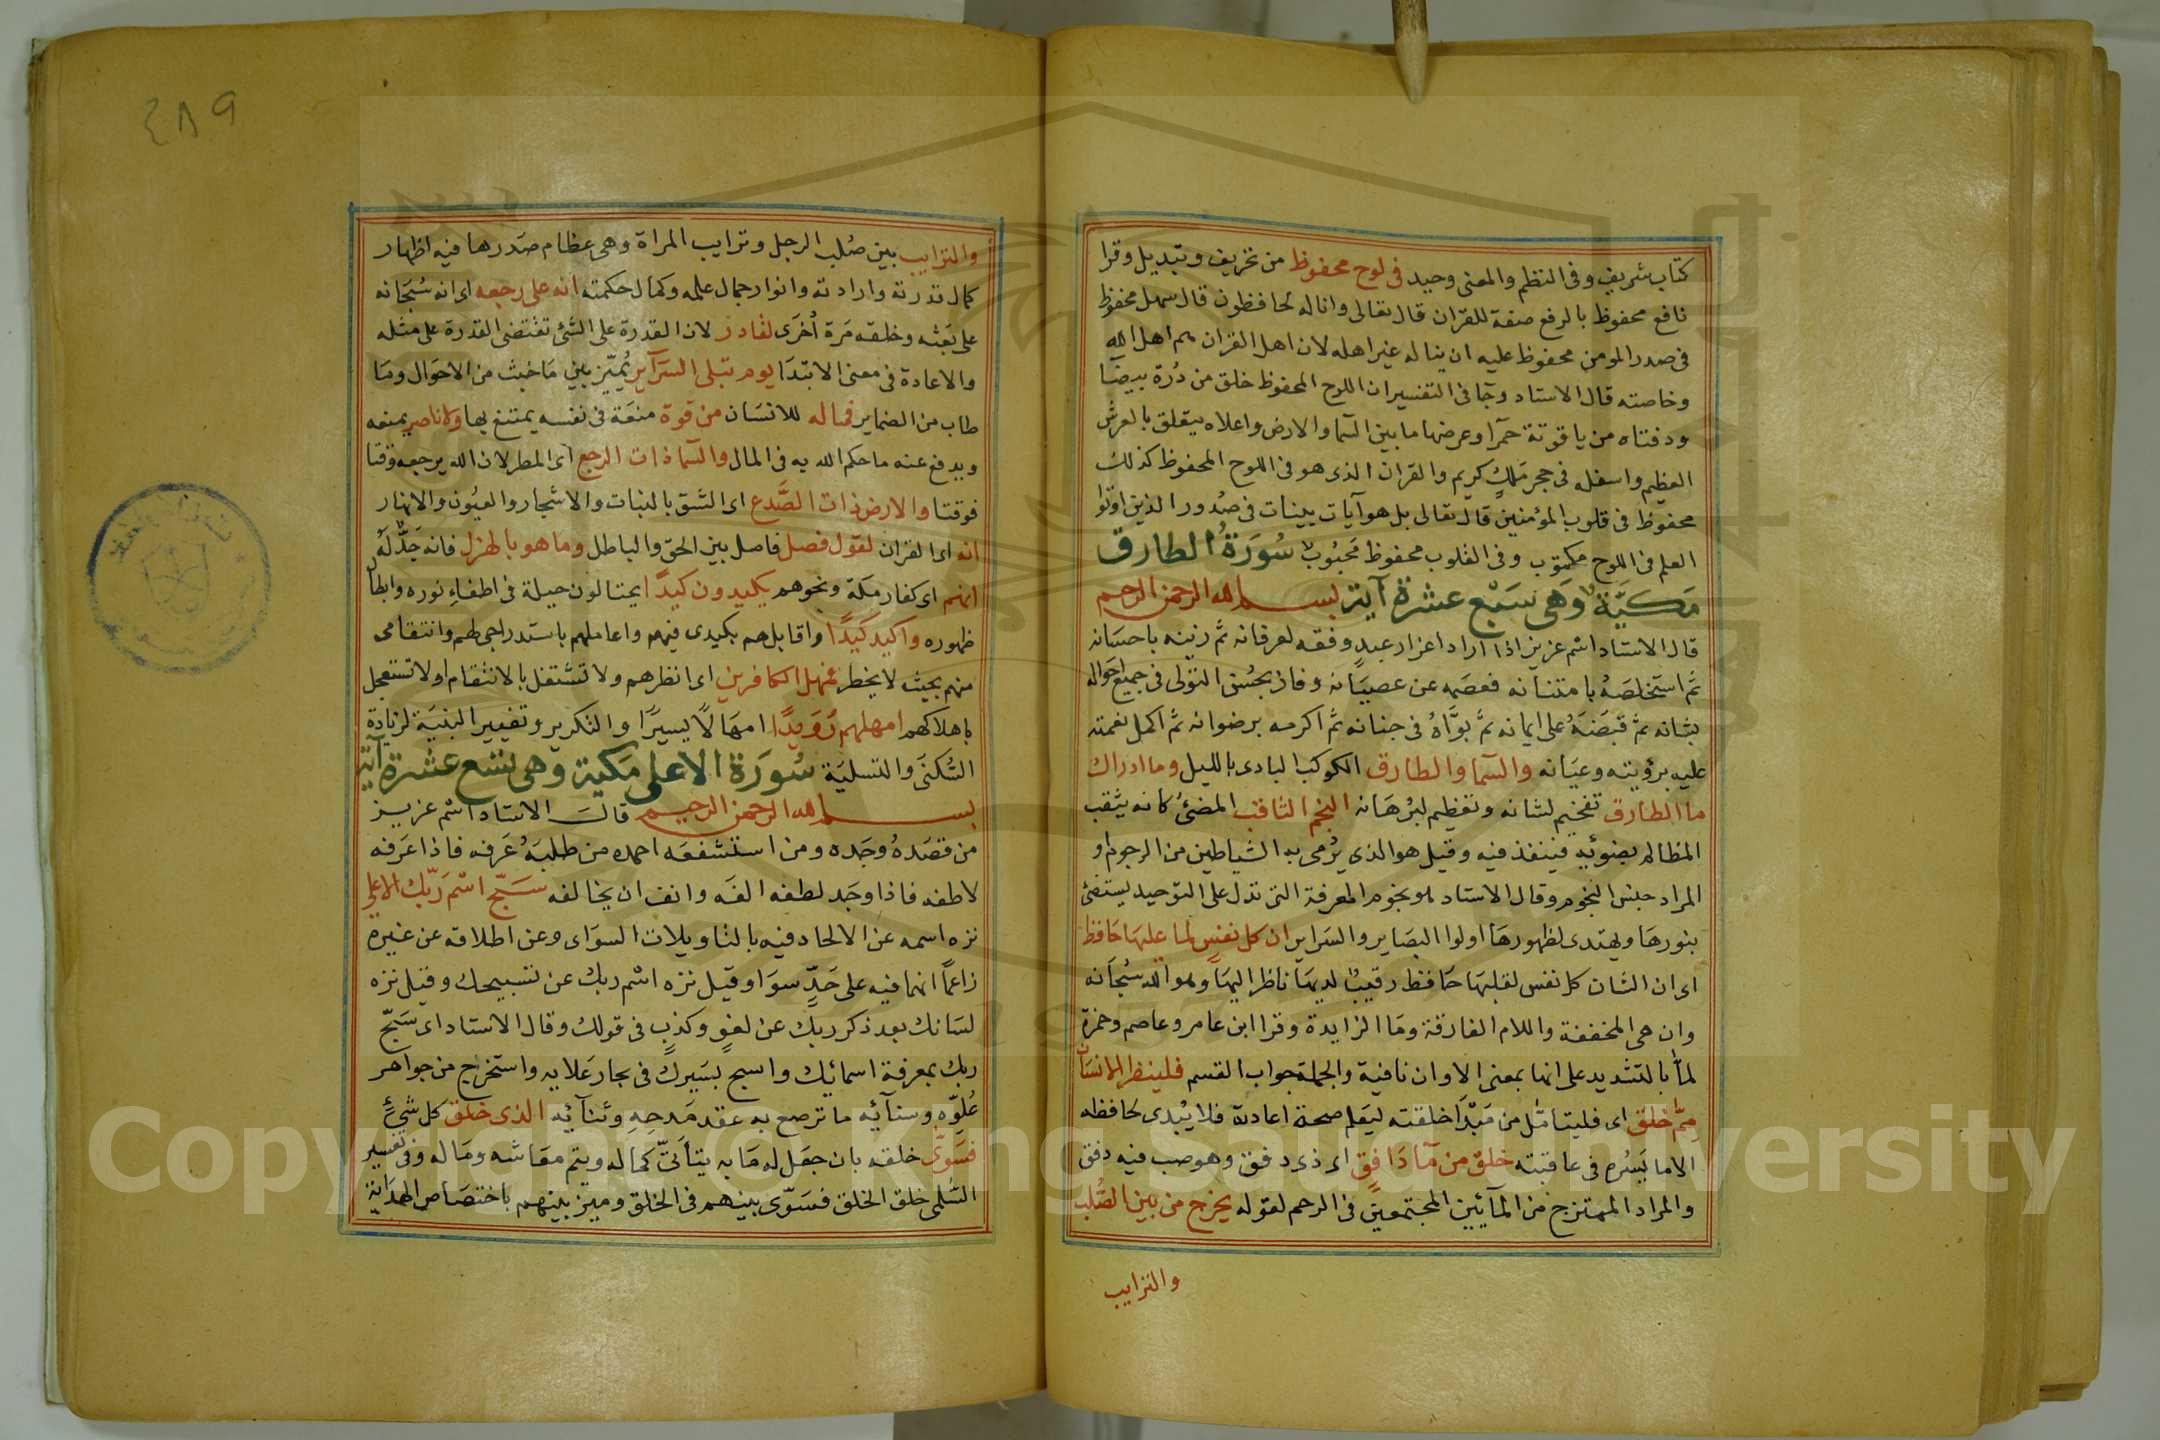 كتاب شريف وفى النظم والمعنى وحيد فى لوح محفوظ من تحريف وتبديل وقرا
نافع محفوظ بالرفع صفة للقران قال تعالى وانا له لحافظون قال سهل محفوظ
فى صدر المومن محفوظ عليه ان يناله غير اهله لان اهل القران هم اهل الله
وخاصته قال الاستاد وجآ فى التفسير ان اللوح المحفوظ خلق من دُرة بيضآ
ودفتاه من ياقوتة حمرآ وعرضها ما بين السما والارض واعلاه يتعلق بالعرش
العظيم واسفله فى حجر مَلكٍ كريم والقران الذى هو فى اللوح المحفوظ كذلك
محفوظ فى قلوب المؤمنين قال تعالى بل هو آيات بينات فى صُدور الذين اوتوا
العلم فى اللوح مكتوب وفى القلوب محفوظ محبُوب سُورَةُ الطارق
مَكيَّة وَهى سَبْع عشرة آية بسم الله الرحمن الرحيم
قال الاستاد اسم عزيز اذا اراد اعزاز عبدٍ وفقه لعرفانه ثم زينه باحسَانه
ثم استخلصَهُ بامتنانه فعصَمه عن عصيَانه وفاز بحُسن التولى فى جميع احَواله
بشانه ثم قبضَهُ على ايمانه ثم بوَّاهُ فى جنانه ثم اكرمه برضوانه ثم اكمل نعمته
عليه برؤيته وعيَانه والسّما والطارق الكوكب البادى بالليل وما ادراك
ما الطارق تفخيم لشانه وتعظيم لبُرهَانه النجم الثاقب المضئ كانه يثقب
المظالم بضوئه فينفذ فيه وقيل هو الذى يُرمى به الشياطين من الرجوم و
المراد جنس النجوم وقال الاستاد هو نجوم المعرفة التى تدل على التوحيد يستضئ
بنورهَا ويهتدى لظهورهَا اولوا البصَاير والسَراير ان كل نفس لما عليهَا حَافظ
اى ان الشان كل نفس لقلبهَا حَافظ رقيبٌ لديهَا ناظر اليهَا وهو الله سُبحَانه
وان هى المخففة واللام الفارقة ومَا الزايدة وقرا ابن عامر وعاصم وحمزة
لمَّا بالتشديد على انها بمعنى الا وان نافية والجملة جواب القسم فلينظر الانسَان
مِمّ خلق اى فليتامَّل من مَبْدَا خلقته ليَعلم صحة اعادته فلا يُبدى لحافظه
الا ما يَسُره فى عاقبته خلق من مآ دَافِقٍ اى ذى دفق وهو صب فيه دفق
والمراد الممتزج من المآئين المجتمعين فى الرحم لقوله يخرج من بين الصُّلب
والترايب
٤٨٩
والترايب بين صُلب الرجل وترايب المراة وهى عظام صَدرها فيه اظهار
كمال قدرته وارادته وانوار جمال علمه وكمال حكمته انه على رجعه اى انه سُبحَانه
على بَعْثه وخلقه مَرة اُخرَى لقادر لان القدرة على الشئ تقتضى القدرة على مثله
والاعادة فى معنى الابتدَا يوم تبلى السَرآير يُميّز بين مَا خبث من الاحوَال ومَا
طاب من الضماير فما له للانسَان من قوة منعَة فى نفسه يمتنع بها ولا ناصرٍ يمنعه
ويدفع عنه ما حكم الله به فى المال والسّما ذات الرجع اى المطر لان الله يرجعه وقتا
فوقتا والارض ذات الصَّدع اى الشق بالنبات والاشجار والعيُون والانهار
انه اى القران لقول فصل فاصل بين الحق والباطل وما هو بالهزل فانه جَدٌّ لهُ
انهم اى كفار مكة ونحوهم يكيدون كيدًا يحتالون حيلة فى اطفاءِ نوره وابطال
ظهوره واكيد كيدًا واقابلهم بكيدى فيهم واعاملهم باستدراجى لهم وانتقامى
منهم بحيث لا يخطر فمهل الكافرين اى انظرهم ولا تشتغل بالانتقام ولا تستعجل
باهلاكهم امهلهم رُوَيدًا امهَالًا يسيرًا والتكرير وتغيير البنيَة لزيادة
السُّكنَى والتسليَة سُورَة الاعلى مَكية وهى تسع عشرة آية
بسم الله الرحمن الرحيم قالَ الاستاد اسم عزيز
من قصَدهُ وجَده ومن استشفعَه احمده من طلبَهُ عَرفه فاذا عَرَفه
لاطفه فاذا وجَد لطفه الفَه وانف ان يخالفه سَبّح اسْم رَبّك الاعلى
نزه اسمه عن الالحاد فيه بالتاويلات السوَاى وعن اطلاقه عن غيره
زاعمًا انهما فيه على حَدٍّ سوَا وقيل نزه اسْم ربك عن تسبيحك وقيل نزه
لسَانك بعد ذكر ربك عن لغوٍ وكذبٍ فى قولك وقال الاستاد اى سَبّح
ربك بمعرفة اسمائك واسبح بسَيرك فى بحار عَلايه واستخرج من جواهر
عُلوّه وسنآئه ما ترصع به عقد مَدحِهِ وثنآئه الذى خلق كل شئٍ
فسَوّى خلقه بان جعَل له مَا به يتأتّى كمَاله ويتم معَاشه ومَاله وفى تفسير
السّلمى خلق الخلق فسَوّى بينهم فى الخلق وميز بينهم باختصَاص الهدَاية
Copyright © King Saud University